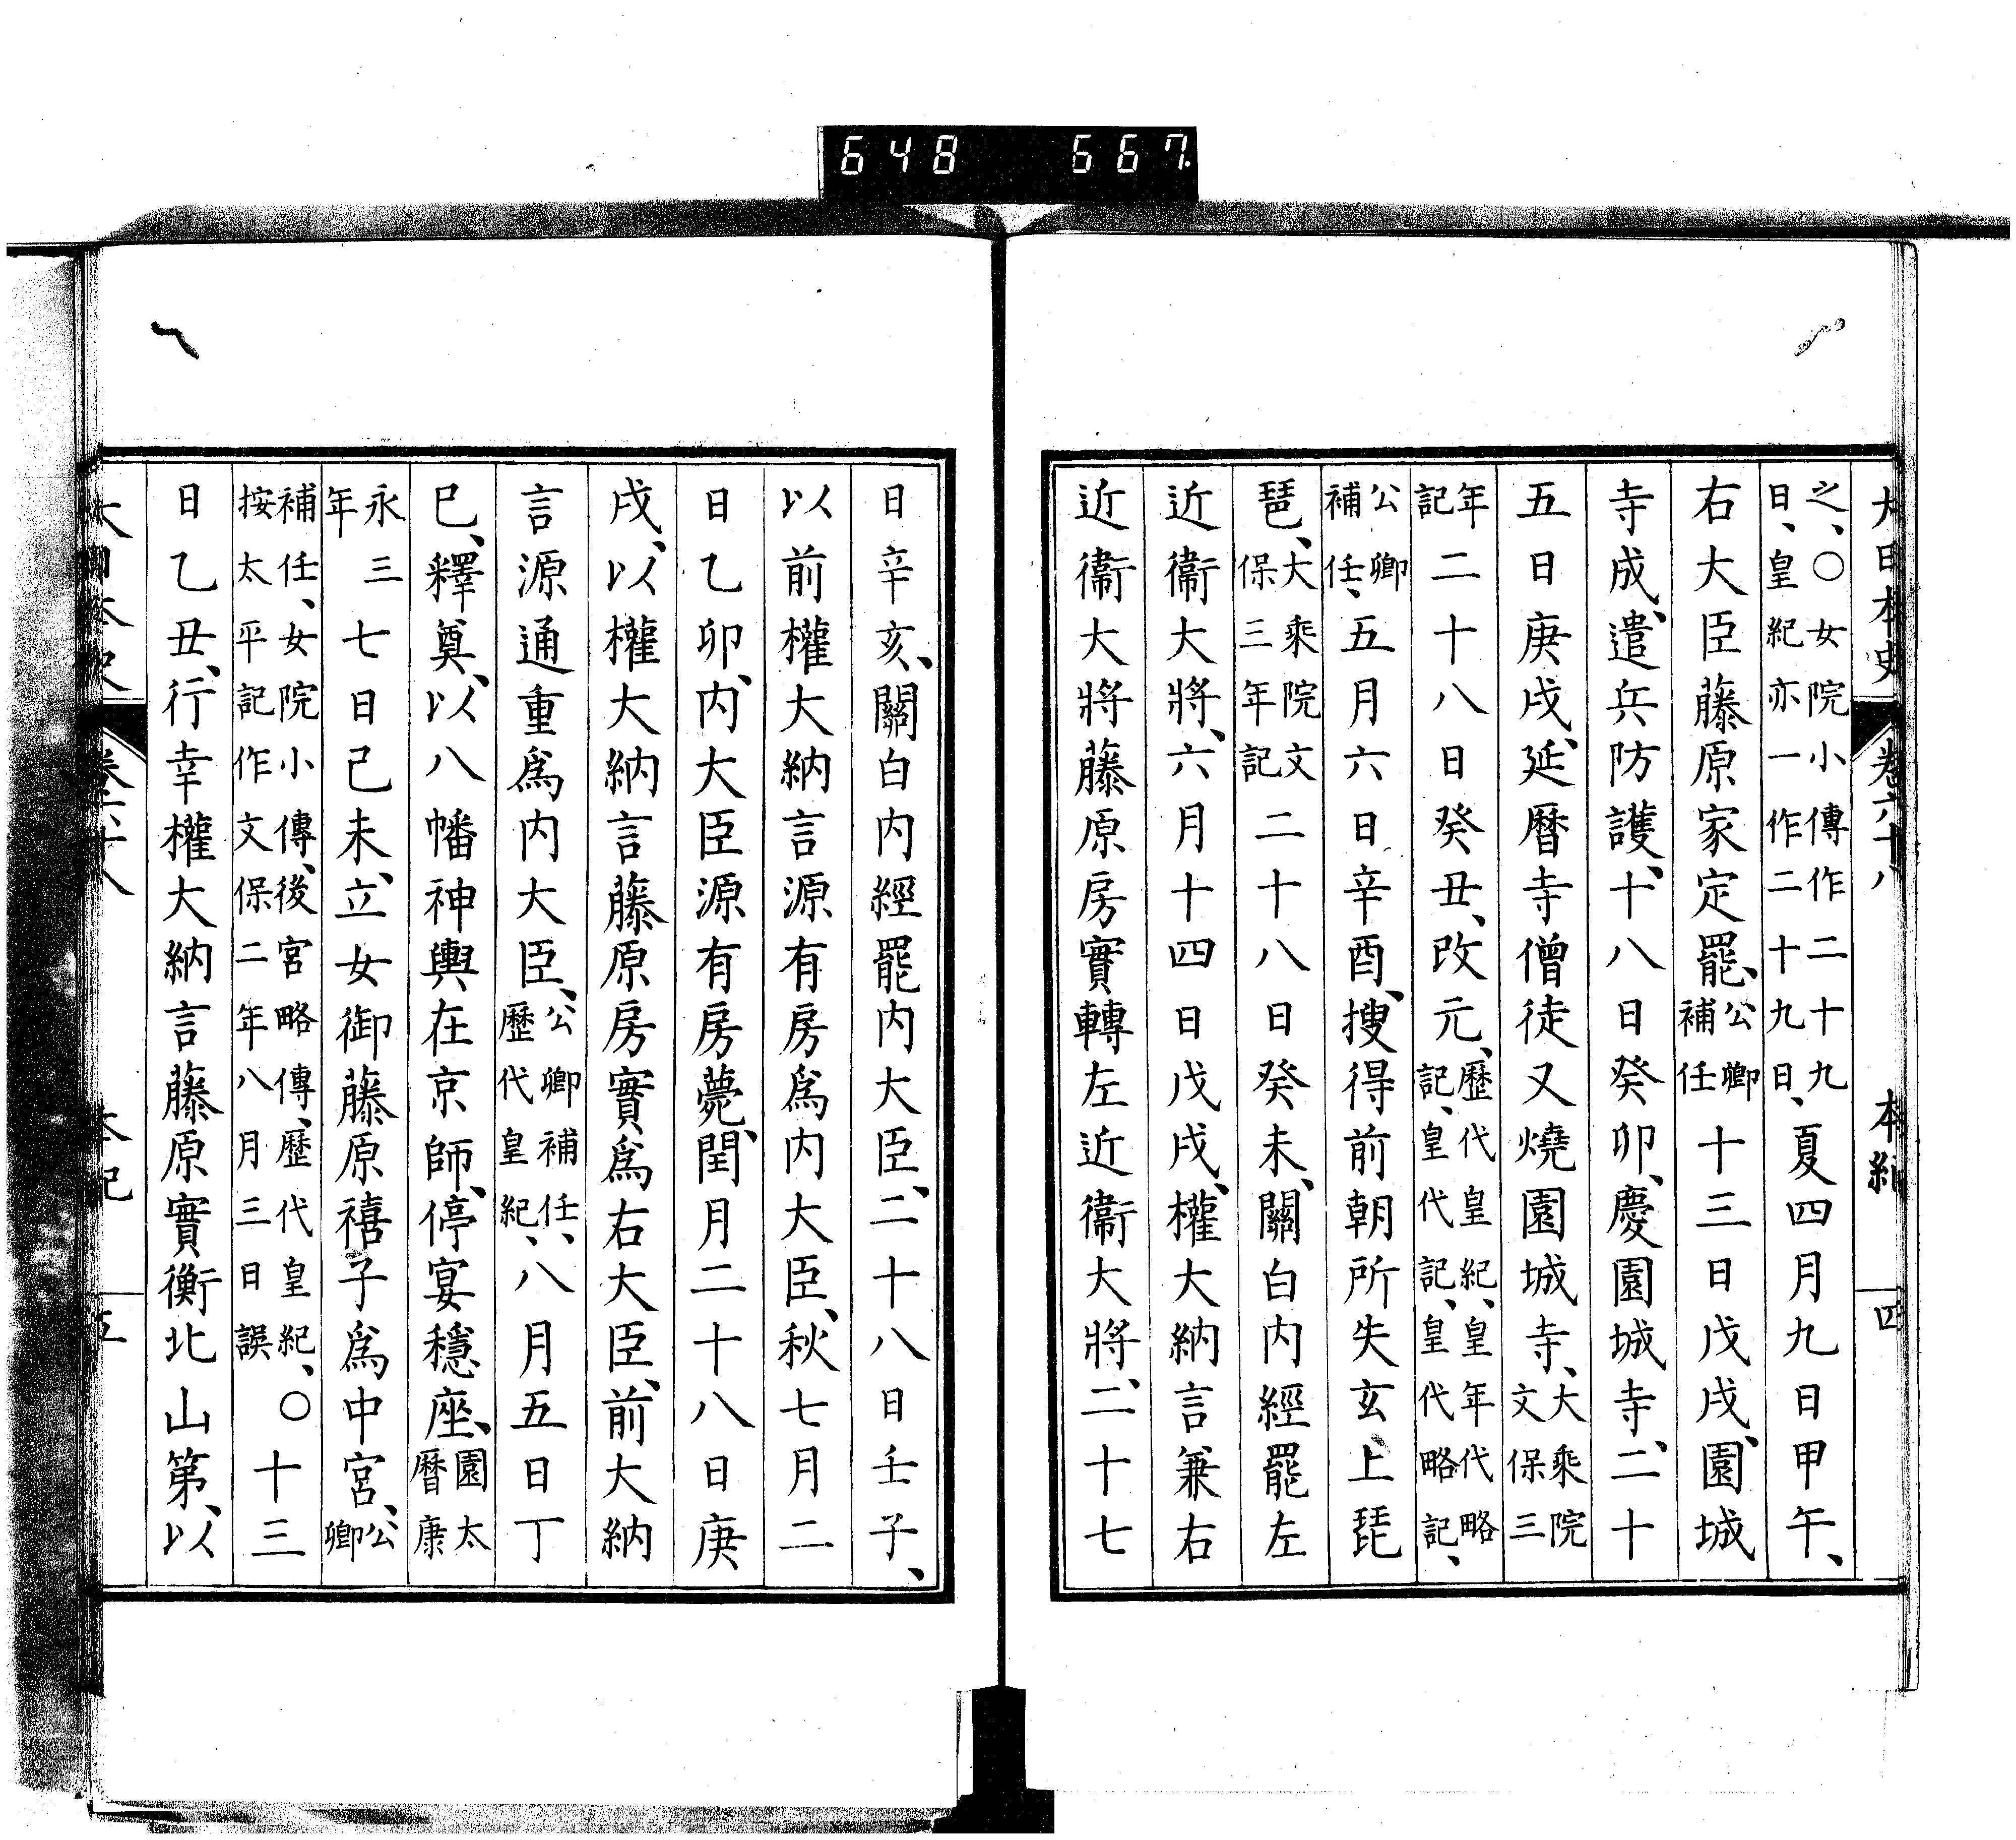 648 667.
大日本史 卷六十八 本紀 四
之、〇女院小傳作二十九
日、皇紀亦一作二十九日、夏四月九日甲午、
右大臣藤原家定罷、公卿補任十三日戊戌、園城
寺成、遣兵防護、十八日癸卯、慶園城寺、二十
五日庚戌、延曆寺僧徒又燒園城寺、大乘院文保三
年記二十八日癸丑、改元、歷代皇紀、皇年代略記、皇代記、皇代略記、
公卿補任、五月六日辛酉、搜得前朝所失玄上琵
琶、大乘院文保三年記二十八日癸未、關白內經罷左
近衞大將、六月十四日戊戌、權大納言兼右
近衞大將藤原房實轉左近衞大將、二十七
日辛亥、關白內經罷內大臣、二十八日壬子、
以前權大納言源有房爲內大臣、秋七月二
日乙卯、內大臣源有房薨、閏月二十八日庚
戌、以權大納言藤原房實爲右大臣、前大納
言源通重爲內大臣、公卿補任、歷代皇紀、八月五日丁
巳、釋奠、以八幡神輿在京師、停宴穩座、園太曆康
永三年七日己未、立女御藤原禧子爲中宮、公卿
補任、女院小傳、後宮略傳、歷代皇紀、〇按太平記作文保二年八月三日誤十三
日乙丑、行幸權大納言藤原實衡北山第、以
大日本史 卷六十八 本紀 五